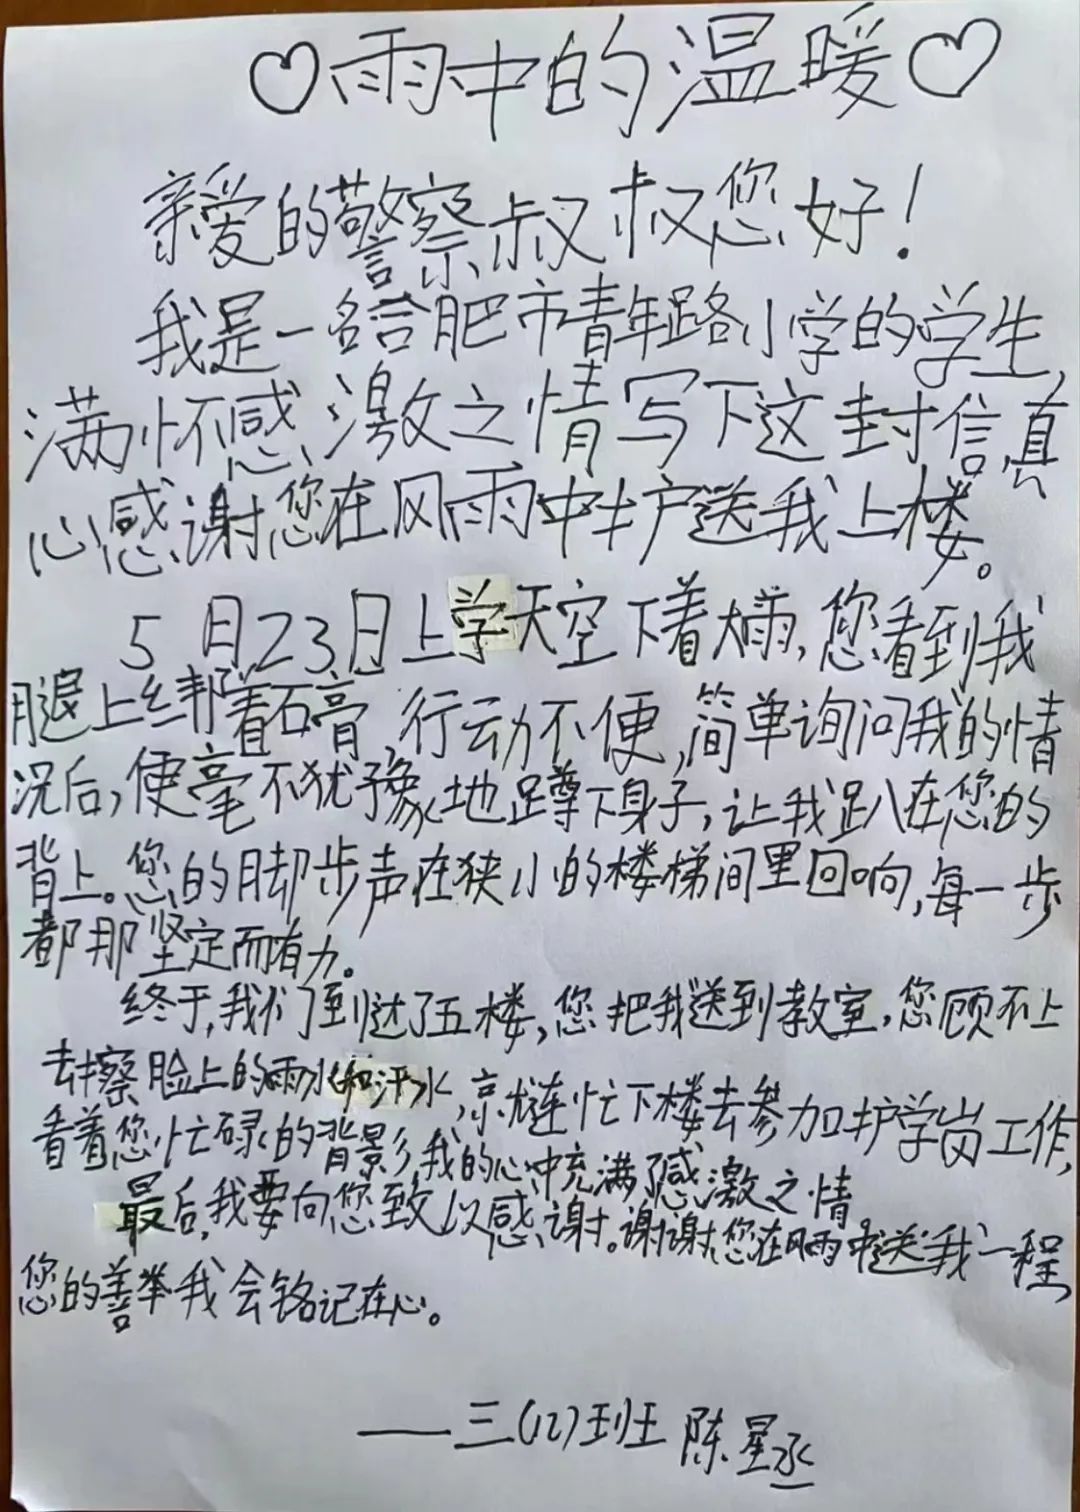 ♡雨中的温暖♡
亲爱的警察叔叔您好!
我是一名合肥市青年路小学的学生,
满怀感激之情写下这封信真
心感谢您在风雨中护送我上楼。
5月23日上学天空下着大雨,您看到我
腿上绑着石膏,行动不便,简单询问我的情
况后,便毫不犹豫地蹲下身子,让我趴在您的
背上。您的脚步声在狭小的楼梯间里回响,每一步
都那坚定而有力。
终于,我们到达了五楼,您把我送到教室,您顾不上
去擦脸上的雨水和汗水,就连忙下楼去参加护学岗工作,
看着您忙碌的背影,我的心中充满了感激之情。
最后,我要向您致以感谢。谢谢您在风雨中送我一程,
您的善举我会铭记在心。
——三(12)班 陈星丞